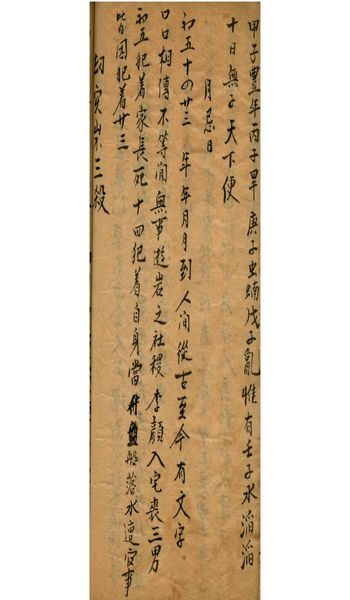 甲子豐年丙子旱庚子虫蝻戊子亂惟有壬子水滔滔
十日無子天下便
月忌日
初五十四廿三年年月月到人间從古至今有文字
口口相傳不等閒無事遊岩之社稷李顏入宅喪三男
初五犯着家長死十四犯着自身當船落水遭官事
皆因犯着廿三
刼灾岁三殺